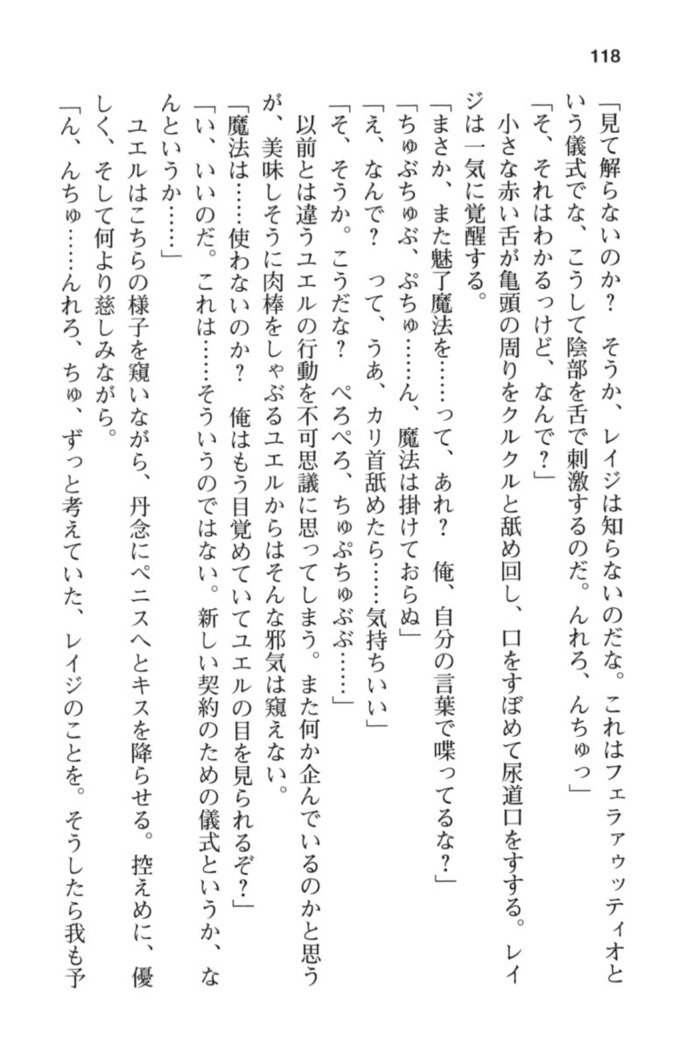 118
「見て解らないのか？　そうか、レイジは知らないのだな。これはフェラァゥッティオと
いう儀式でな、こうして陰部を舌で刺激するのだ。んれろ、んちゅっ」
「そ、それはわかるっけど、なんで？」
小さな赤い舌が亀頭の周りをクルクルと舐め回し、口をすぼめて尿道口をすする。レイ
ジは一気に覚醒する。
「まさか、また魅了魔法を……って、あれ？　俺、自分の言葉で喋ってるな？」
「ちゅぶちゅぶ、ぷちゅ……ん、魔法は掛けておらぬ」
「え、なんで？　って、うあ、カリ首舐めたら……気持ちいい」
「そ、そうか。こうだな？　ぺろぺろ、ちゅぷちゅぶぶ……」
以前とは違うユエルの行動を不可思議に思ってしまう。また何か企んでいるのかと思う
が、美味しそうに肉棒をしゃぶるユエルからはそんな邪気は窺えない。
「魔法は……使わないのか？　俺はもう目覚めていてユエルの目を見られるぞ？」
「い、いいのだ。これは……そういうのではない。新しい契約のための儀式というか、な
んというか……」
ユエルはこちらの様子を窺いながら、丹念にペニスへとキスを降らせる。控えめに、優
しく、そして何より慈しみながら。
「ん、んちゅ……んれろ、ちゅ、ずっと考えていた、レイジのことを。そうしたら我も予